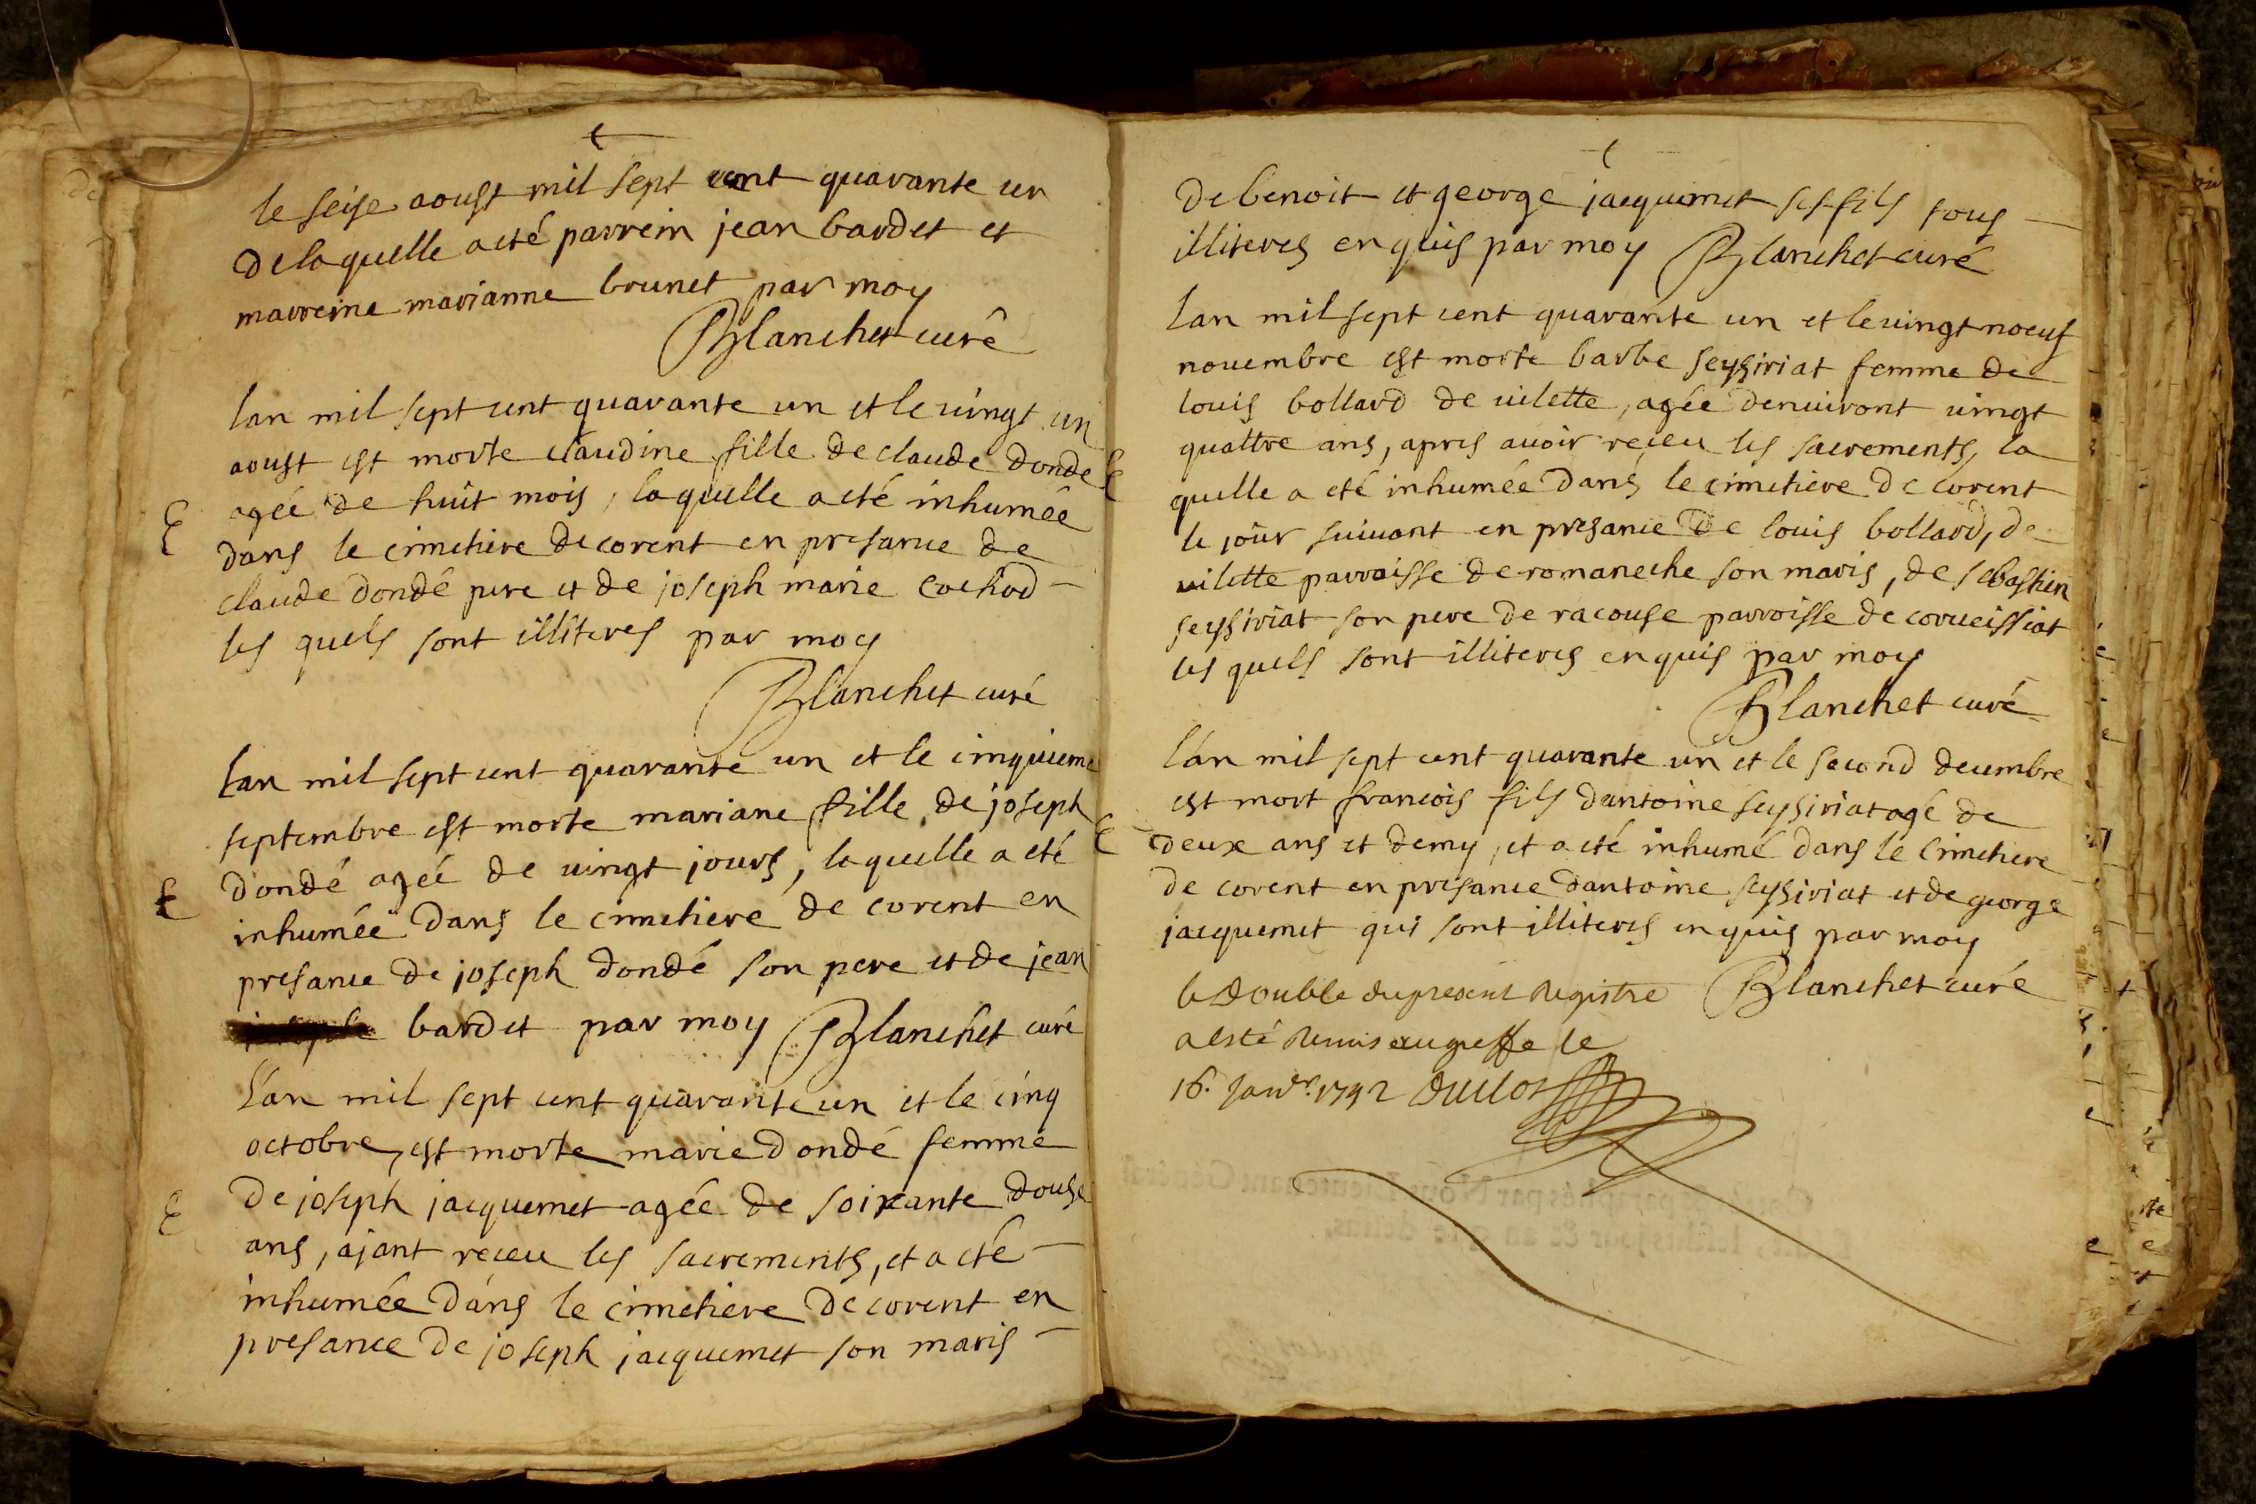 le seise aoust mil sept cent quarante un
de laquelle a eté parrein jean bardet et
marreine marianne brunet par moy
Blanchet curé
lan mil sept cent quarante un et le vingt un
aoust est morte claudine fille de claude donde
agée de huit mois, laquelle a eté inhumée
dans le cimetiere de corent en presance de
claude dondé pere et de joseph marie Cochod
les quels sont illiteres par moy
Blanchet curé
lan mil sept cent quarante un et le cinquieme
septembre est morte mariane fille de joseph
dondé agée de vingt jours, laquelle a eté
inhumée dans le cimetiere de corent en
presance de joseph dondé son pere et de jean
bardet par moy Blanchet curé
l'an mil sept cent quarante un et le cinq
octobre, est morte marie dondé femme
de joseph jacquemet agée de soixante douse
ans, ajant receu les sacrements, et a eté
inhumée dans le cimetiere de corent en
presance de joseph jacquemet son maris
de benoit et george jacquemet ses fils tous
illiteres enquis par moy Blanchet curé
lan mil sept cent quarante un et le vingt noeuf
novembre est morte barbe seysiriat femme de
louis bollard de vilette, agée denviront vingt
quattre ans, apres avoir receu les sacrements, la
quelle a eté inhumée dans le cimetiere de corent
le jour suivant en presance de louis bollard, de
vilette parroisse de romaneche son maris, de sebastien
seysiriat son pere de racouse parroisse de corveissiat
les quels sont illiteres enquis par moy
Blanchet curé
l'an mil sept cent quarante un et le second decembre
est mort francois fils dantoine seysiriat agé de
deux ans et demy, et a eté inhumé dans le Cimetiere
de corent en presance dantoine seysiriat et de george
jacquemet qui sont illiteres enquis par moy
Blanchet curé
le Double du present Registre
a esté Remis au greffe le
16. Janvr. 1742